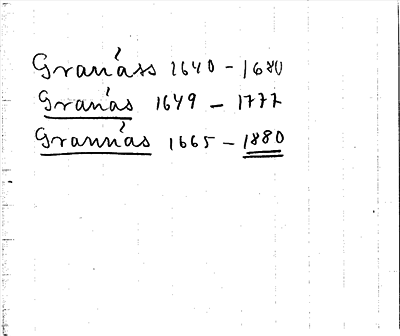 Granåss 1640 - 1680
Granås 1649 - 1777
Grannås 1665 - 1880